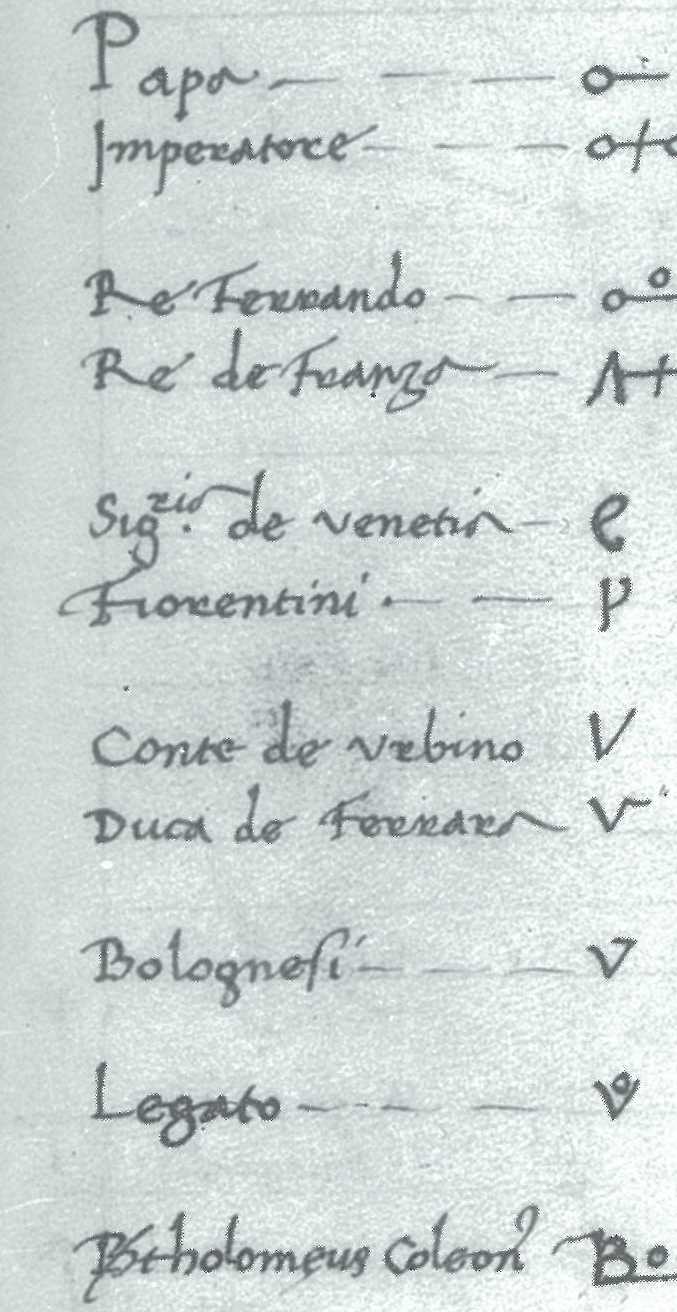 Papa
Imperatore
Re Ferrando
Re de Franza
Sig.ria de venetia
Fiorentini
Conte de vrbino
Duca de Ferrara
Bolognesi
Legato
Bartholomeus Coleon